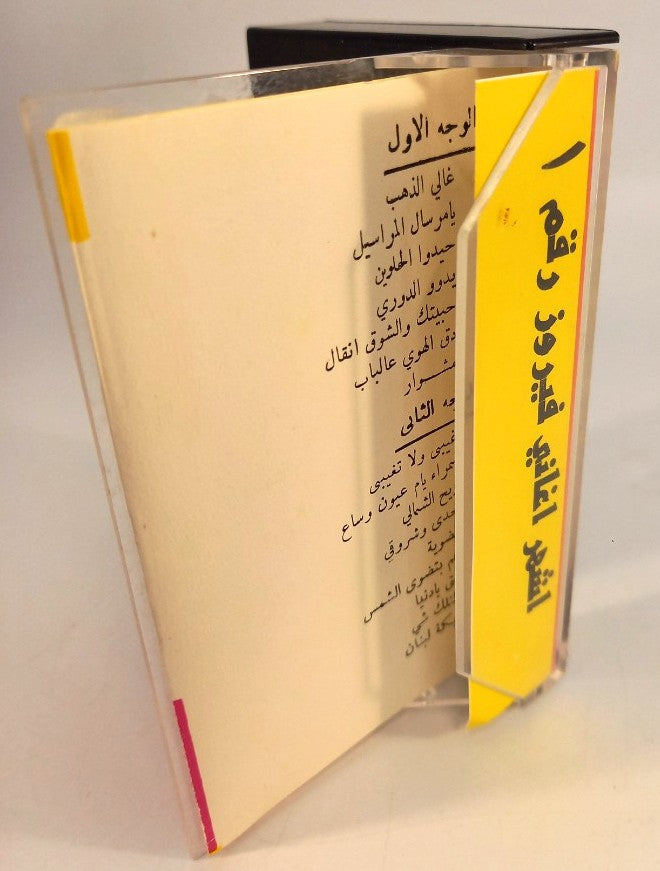 الوجه الاول
غالي الذهب
يامرسال المراسيل
حيدوا الحلوين
الدوري
حبيتك والشوق انقال
دق الهوي عالباب
مشوار
الثانى
ولا تغيبى
يام عيون وساع
الشمالي
وشروقي
بتضوى الشمس
يادنيا
شي
لبنان
اشهر اغاني فيروز رقم ١